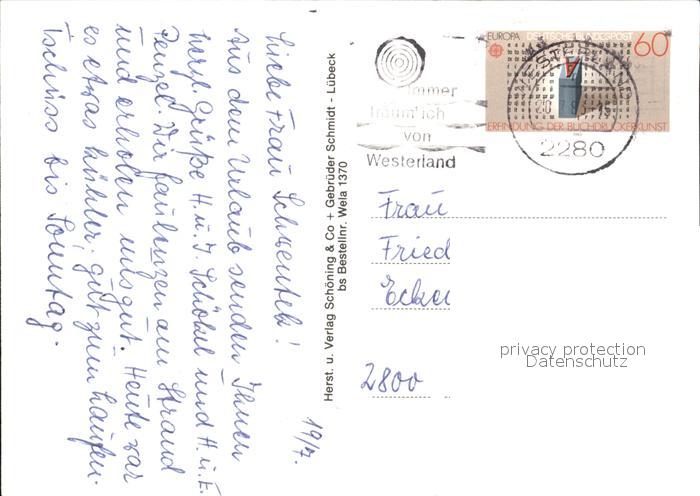 19/7.
Liebe Frau Schwentek!
Aus dem Urlaub senden Ihnen
herzl. Grüße H. u. I. Schökel und H. u. E.
Penzel. Wir faulenzen am Strand
und erholen uns gut. Heute war
es etwas kühler; gut zum Laufen.
Tschüss bis Sonntag.
Herst. u. Verlag Schöning & Co + Gebrüder Schmidt - Lübeck
bs Bestellnr. Wela 1370
Immer
träum' ich
von
Westerland
EUROPA DEUTSCHE BUNDESPOST 60
ERFINDUNG DER BUCHDRUCKERKUNST
WESTERLAND
2280
Frau
Fried
Ecker
2800
privacy protection
Datenschutz